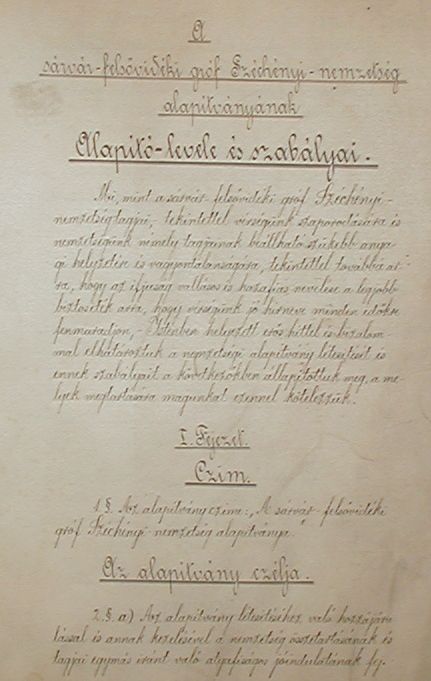 A
sárvár-felsővidéki gróf Széchényi-nemzetség
alapítványának
Alapító-levele és szabályai.
Mi, mint a sárvár-felsővidéki gróf Széchényi-
nemzetség tagjai, tekintettel vérségünk szaporodására és
nemzetségünk némely tagjainak beállható szűkebb anya-
gi helyzetére és vagyontalanságára, tekintettel továbbá ar-
ra, hogy az ifjuság vallásos és hazafias nevelése a legjobb
biztosíték arra, hogy vérségünk jó hirneve minden időkre
fenmaradjon, - Istenben helyezett erős hittel és bizalom-
mal elhatároztuk a nemzetségi alapítvány létesítését és
ennek szabályait a következőkben állapítottuk meg, a me-
lyek megtartására magunkat ezennel kötelezzük.
I. Fejezet.
Czím.
1. §. Az alapítvány czíme: „A sárvár-felsővidéki
gróf Széchényi-nemzetség alapítványa."
Az alapítvány czélja.
2. §. a) Az alapítvány létesítéséhez való hozzájáru-
lással és annak kezelésével a nemzetség összetartásának és
tagjai egymás iránt való atyafiságos jóindulatának fej-